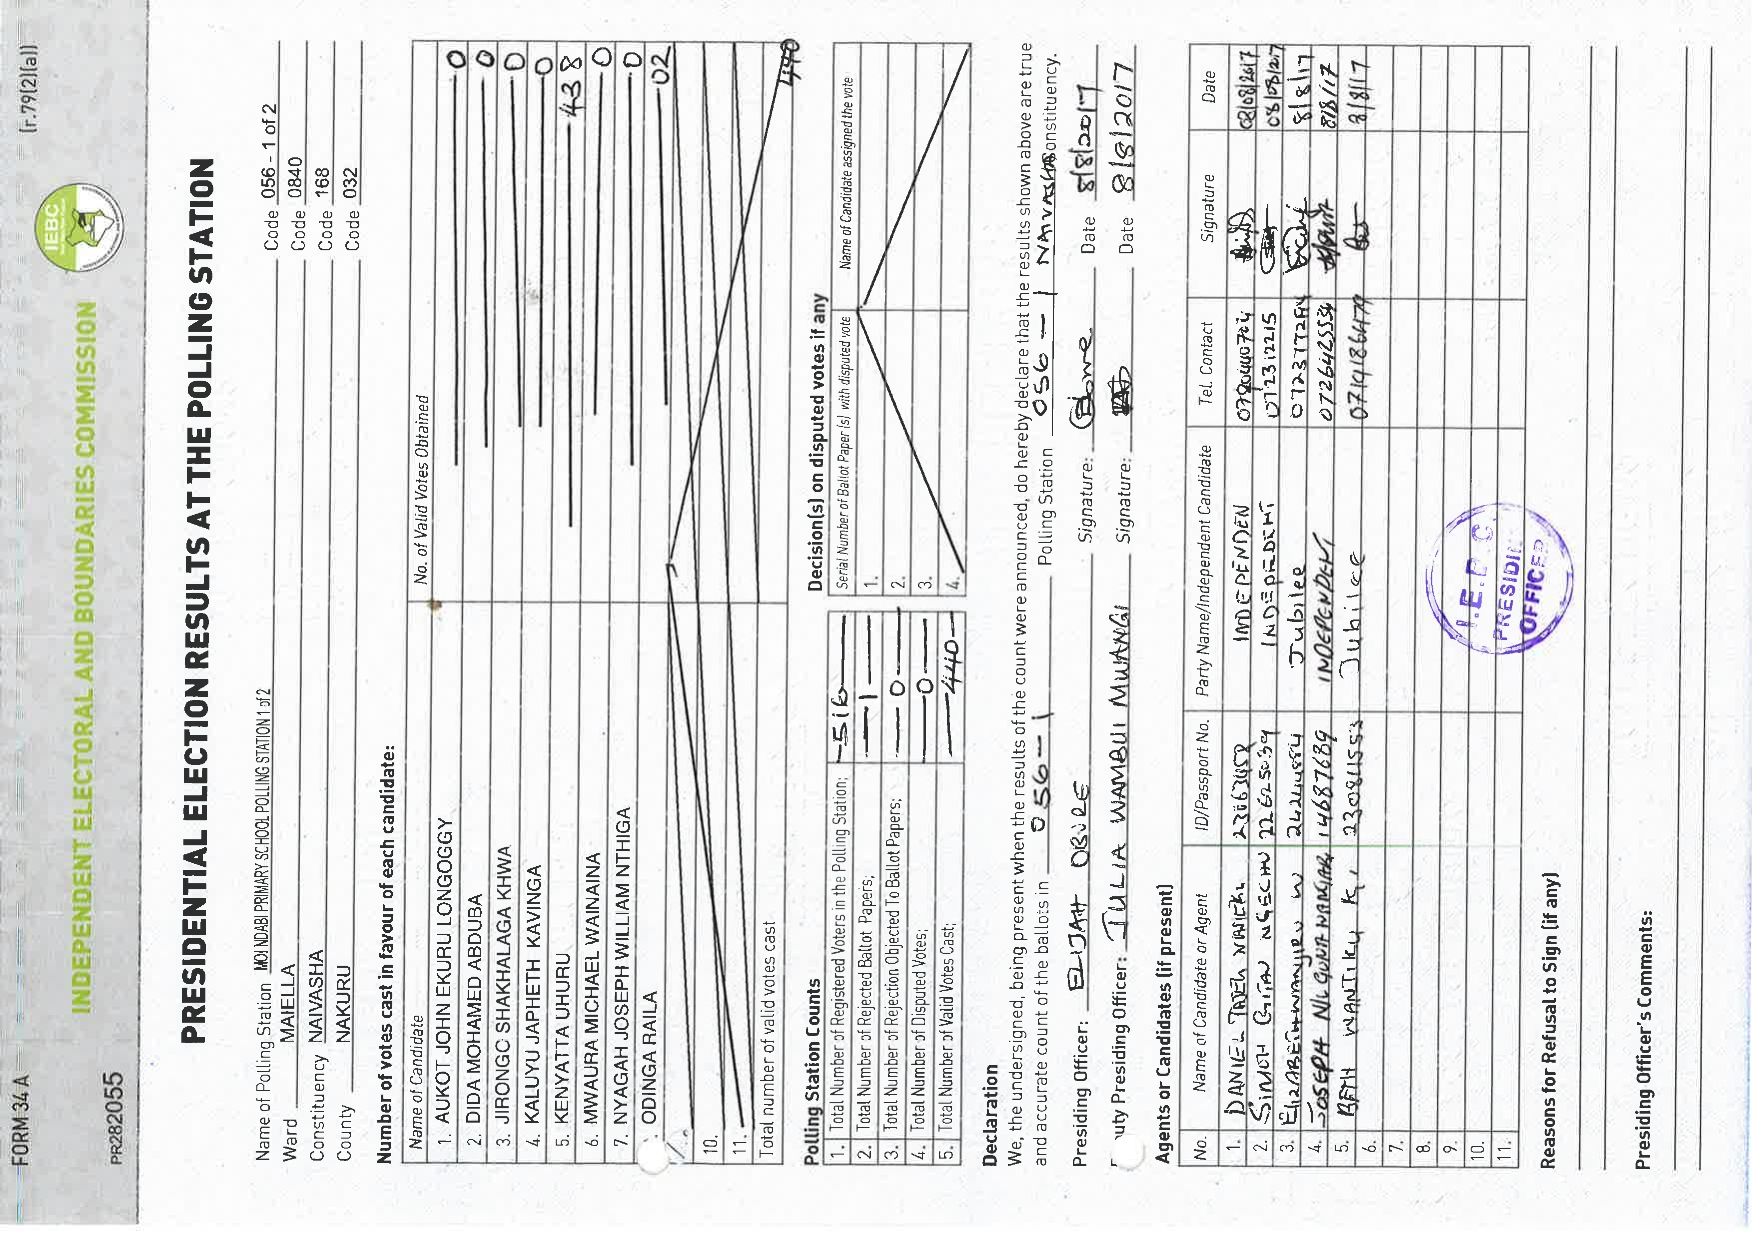 FORM 34 A
(r.79(2)(a))
IEBC
INDEPENDENT ELECTORAL AND BOUNDARIES COMMISSION
PR282055
PRESIDENTIAL ELECTION RESULTS AT THE POLLING STATION
Name of Polling Station MOI NDABI PRIMARY SCHOOL POLLING STATION 1 of 2 Code 056 - 1 of 2
Ward MAIELLA Code 0840
Constituency NAIVASHA Code 168
County NAKURU Code 032
Number of votes cast in favour of each candidate:
Name of Candidate No. of Valid Votes Obtained
1. AUKOT JOHN EKURU LONGOGGY 0
2. DIDA MOHAMED ABDUBA 0
3. JIRONGC SHAKHALAGA KHWA 0
4. KALUYU JAPHETH KAVINGA 0
5. KENYATTA UHURU 438
6. MWAURA MICHAEL WAINAINA 0
7. NYAGAH JOSEPH WILLIAM NTHIGA 0
ODINGA RAILA 02
10.
11.
Total number of valid votes cast 440
Polling Station Counts
1. Total Number of Registered Voters in the Polling Station; 516
2. Total Number of Rejected Ballot Papers; 1
3. Total Number of Rejection Objected To Ballot Papers; 0
4. Total Number of Disputed Votes; 0
5. Total Number of Valid Votes Cast; 440
Decision(s) on disputed votes if any
Serial Number of Ballot Paper (s) with disputed vote Name of Candidate assigned the vote
1.
2.
3.
4.
Declaration
We, the undersigned, being present when the results of the count were announced, do hereby declare that the results shown above are true
and accurate count of the ballots in 056-1 Polling Station 056-1 NAIVASHA Constituency.
Presiding Officer: ELIJAH OBURE Signature: Date 8/8/2017
uty Presiding Officer: JULIA WAMBUI MWANGI Signature: Date 8/8/2017
Agents or Candidates (if present)
No. Name of Candidate or Agent ID/Passport No. Party Name/Independent Candidate Tel. Contact Signature Date
1. DANIEL 23063458 INDEPENDEN 08/08/2017
2. SIMON 22625039 INDEPENDENT 0723112215
3. Jubilee 8/8/17
4. JOSEPH 14687689 INDEPENDENT 0726425534 8/8/17
5. BETH 230811553 Jubilee 0719186479 8/8/17
6.
7.
8.
9.
10.
11.
I.E.B.C.
PRESIDIN
OFFICER
Reasons for Refusal to Sign (if any)
Presiding Officer's Comments: